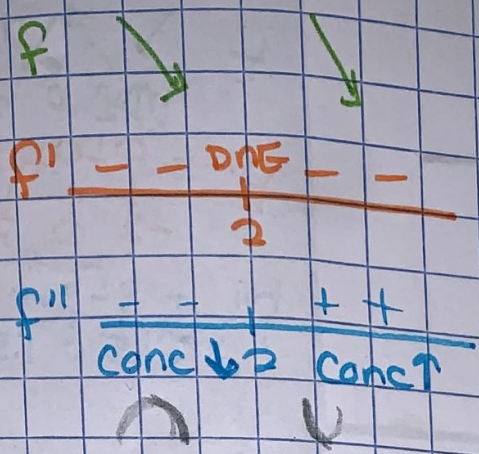 f
f' - - DNE - -
2
f'' - - + +
conc ↓ 2 conc ↑